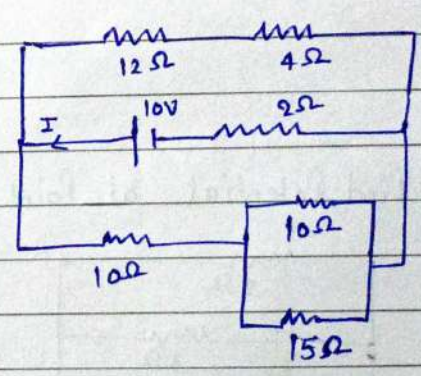 12Ω 4Ω
10V 2Ω
I
10Ω
10Ω
15Ω